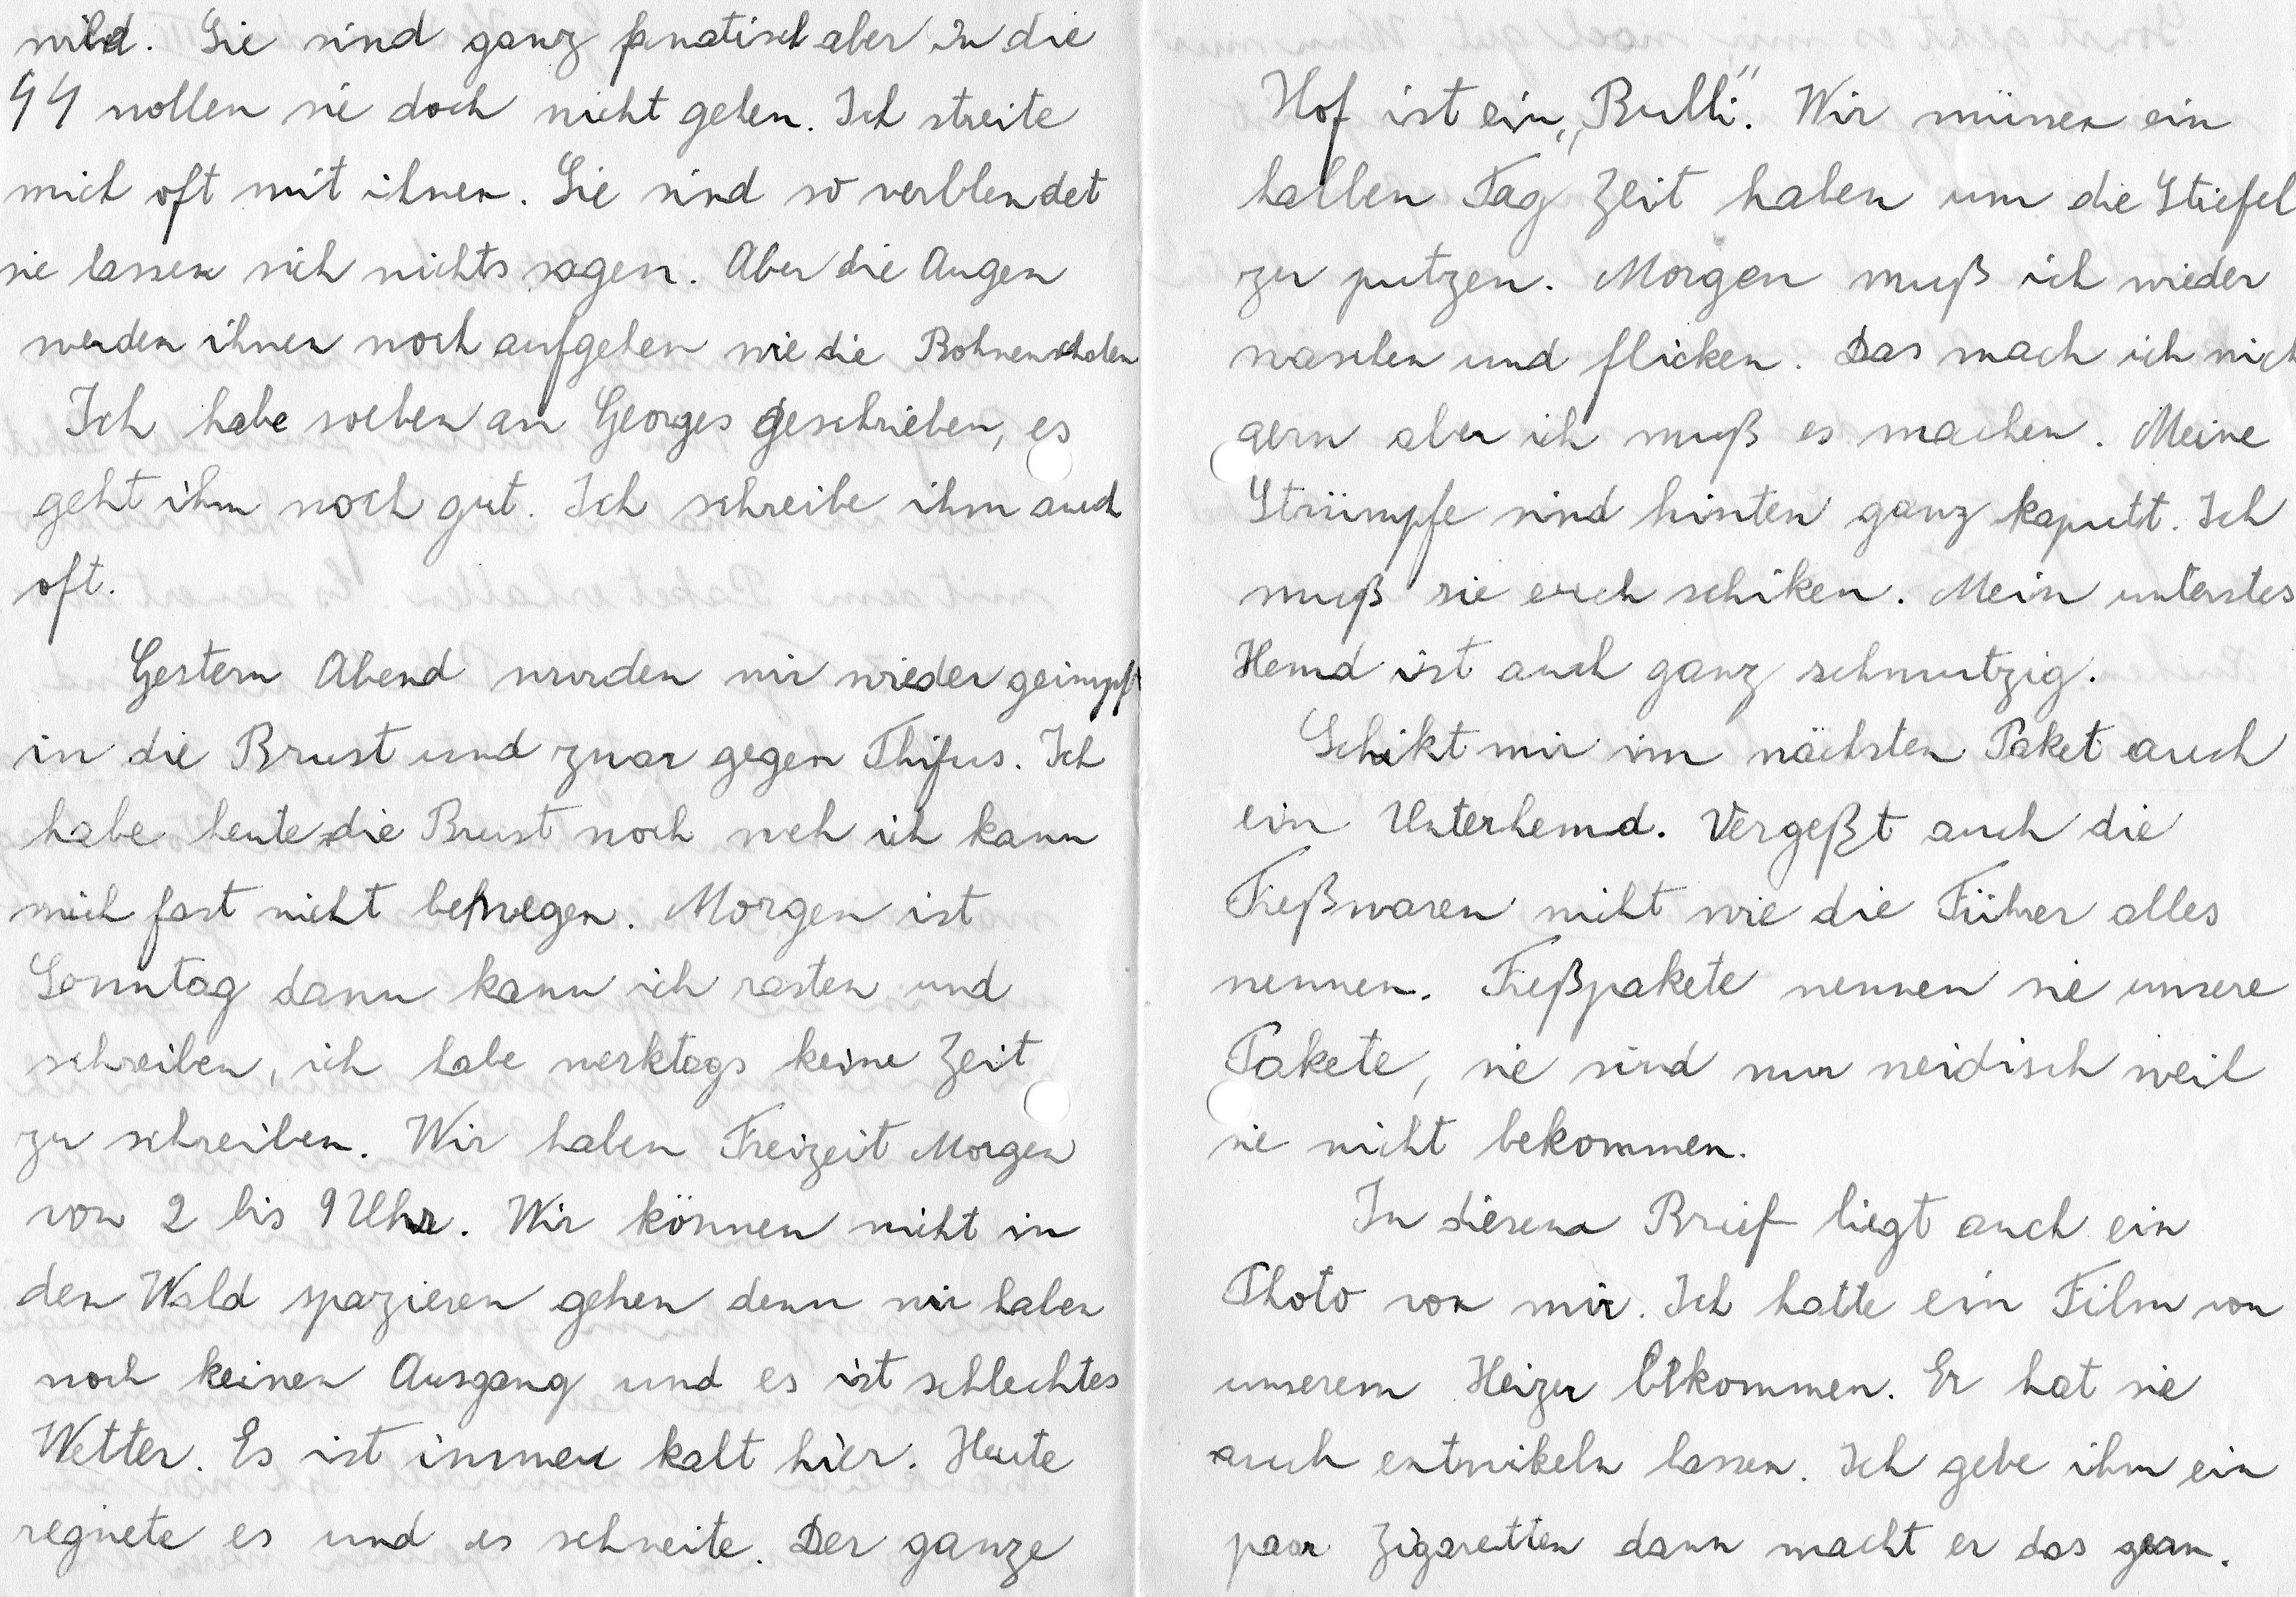 wild. Sie sind ganz fanatisch aber in die
SS wollen sie doch nicht gehen. Ich streite
mich oft mit ihnen. Sie sind so verblendet
sie lassen sich nichts sagen. Aber die Augen
werden ihnen noch aufgehen wie die Bohnenschalen
Ich habe soeben an Georges geschrieben, es
geht ihm noch gut. Ich schreibe ihm auch
oft.
Gestern Abend wurden wir wieder geimpft
in die Brust und zwar gegen Thifus. Ich
habe heute die Brust noch weh ich kann
mich fast nicht bewegen. Morgen ist
Sonntag dann kann ich rasten und
schreiben, ich habe werktags keine Zeit
zu schreiben. Wir haben Freizeit Morgen
von 2 bis 9 Uhr. Wir können nicht in
den Wald spazieren gehen denn wir haben
noch keinen Ausgang und es ist schlechtes
Wetter. Es ist immer kalt hier. Heute
regnete es und es schneite. Der ganze
Hof ist ein „Bulli". Wir müssen ein
halben Tag Zeit haben um die Stiefel
zu putzen. Morgen muß ich wieder
waschen und flicken. Das mach ich nich
gern aber ich muß es machen. Meine
Strümpfe sind hinten ganz kaputt. Ich
muß sie euch schiken. Mein unterstes
Hemd ist auch ganz schmutzig.
Schikt mir im nächsten Paket auch
ein Unterhemd. Vergeßt auch die
Freßwaren nicht wie die Führer alles
nennen. Freßpakete nennen sie unsere
Pakete, sie sind nur neidisch weil
sie nicht bekommen.
In diesem Brief liegt auch ein
Photo von mir. Ich hatte ein Film von
unserem Heizer bekommen. Er hat sie
auch entwikeln lassen. Ich gebe ihm ein
paar Zigaretten dann macht er das gern.